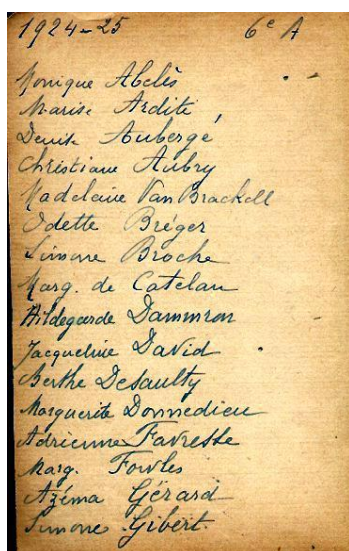 1924-25 6e A
Monique Abelès
Marise Ardité
Denise Aubergé
Christiane Aubry
Madeleine Van Brackell
Odette Bréger
Simone Broche
Marg. de Catelan
Hildegarde Dammron
Jacqueline David
Berthe Desaulty
Marguerite Donnedieu
Adrienne Favresse
Marg. Fowles
Azéma Gérard
Simone Gibert